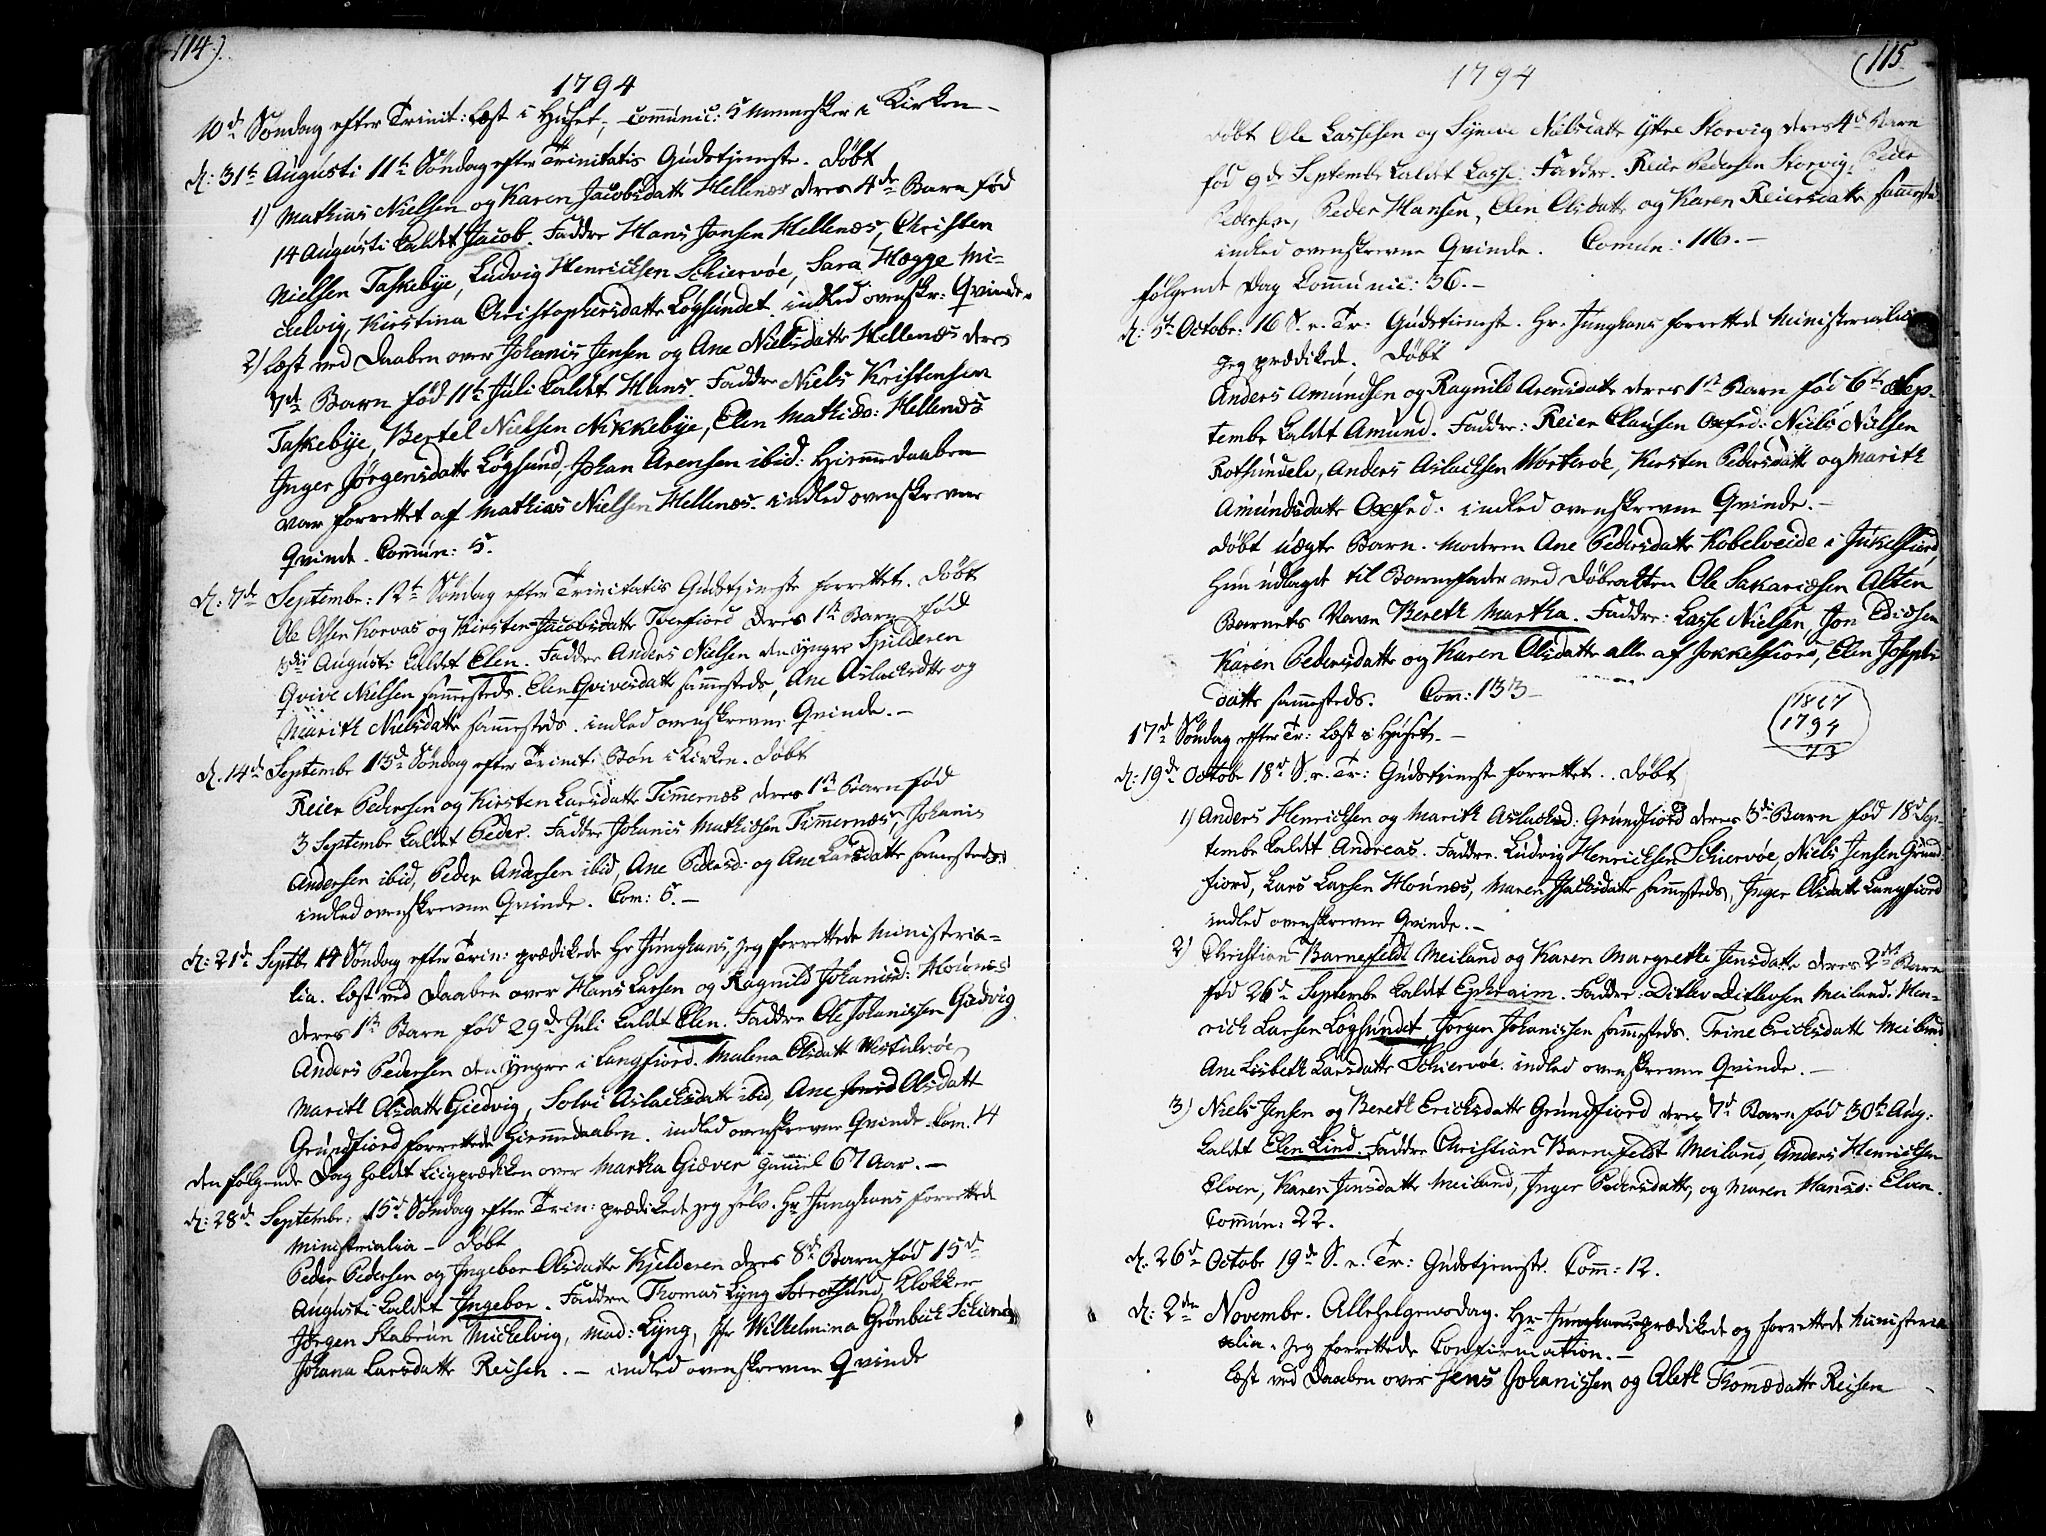 114).
1794
10d Søndag efter Trinit: læst i Huset, communic: 5 Mennesker i Kirken –
d: 31t Augusti 11t Søndag efter Trinitatis Gudstjeneste. døbt
1) Mathias Nielsen og Karen Jacobsdatt Hellenæs deres 4de Barn fød
14 Augusti kaldet Jacob. Faddre Hans Jonsen Hellenæs, Christen
Nielsen Taskebye, Ludvig Henrichsen Schiervøe, Sara Hegge Mi-
ckelvig, Kirstina Christophersdatte Løgsundet. indled ovenskr: Qvinde.
2) læst ved Daaben over Johanis Jensen og Ane Nielsdatte Hellenæs deres
7de Barn fød 11t Juli kaldet Hans. Faddre Niels Kristensen
Taskebye, Bertel Nielsen Nikkebye, Elen Mathisd: Hellenæs
Inger Jørgensdatte Løgsund, Johan Arensen ibid: Hiemmedaaben
var forrettet af Mathias Nielsen Hellenæs. indled ovenskrevne
Qvinde. Commun: 5.
d: 7de Septembr: 12t Søndag efter Trinitatis Gudstjeneste forrettet. døbt
Ole Olsen Korvas og Kirsten Jacobsdatte Tverfiord deres 1st Barn fød
Augusti kaldet Elen. Faddre Anders Nielsen den yngre Spilderen
Qvive Nielsen sammesteds. Elen Qvivesdatt sammesteds, Ane Aslacksdtte og
Marith Nielsdatte sammesteds. indled ovenskrevne Qvinde. –
d. 14d Septembe 13de Søndag efter Trinit: Bøn i Kirken. døbt
Reier Pedersen og Kirsten Larsdatte Timmernæs deres 1st Barn fød
3 Septembe kaldet Peder. Faddre Johanis Mathisen Timmernæs, Johanis
Andersen ibid, Peder Andersen ibid, Ane Pedersd: og Ane Larsdatte sammesteds
indled ovenskrevne Qvinde. Com: 5. –
d: 21de Septb 14 Søndag efter Trin: prædikede Hr Junghans, jeg forrettede Ministeria-
lia. læst ved Daaben over Hans Larsen og Ragnild Johanisd: Hounes
deres 1st Barn fød 29de Juli kaldet Elen. Faddre Ole Johanissen Giedvig
Anders Pedersen den yngre i Langfiord. Malena Olsdatt
Marith Olsdatte Giedvig, Solvi Aslacksdatte ibid, Ane Olsdatt
Grundfiord forrettede Hiemmedaaben. indled ovenskrevne Qvinde. Com. 14
den følgende Dag holdt Liigprædiken over Martha Giæver gammel 67 Aar. –
d: 28de Septembe: 15d Søndag efter Trin: prædikede jeg selv. Hr Junghans forrettede
Ministerialia – døbt
Peder Pedersen og Ingebor Olsdatte Kjelderen deres 8de Barn fød 15de
Augusti kaldet Ingebor. Faddre Thomas Lyng Klokker
Jørgen Mickelvig, Mad: Lyng, Jfr Wilhelmina Grønbech
Johana Larsdatte Reisen. – indled ovenskrevne Qvinde
115
1794
døbt Ole Lassesen og Syneve Nielsdatte Yttre Storvig deres 4de Barn
fød 9de Septembe kaldet Lasse. Faddre. Reier Pedersen Storvig, Peder
Pedersen, Peder Hansen, Elen Olsdatte og Karen Reiersdatte sammested
indled ovenskrevne Qvinde. Comun: 116. –
følgende Dag Communic: 36. –
d: 5t Octobr: 16 S. e. Tr: Gudstieneste. Hr. Junghans forrettede Ministerialia
jeg prædikede. Døbt
Anders Amundsen og Ragnild Arensdatte deres 1st Barn fød 6t Sep-
tembe kaldet Amund. Faddre: Reier Clausen Oxfed: Niels Nielsen
Rothundele, Anders Aslachsen Worterøe, Kirsten Pedersdatte og Marith
Amundsdatte Oxfed. indled ovenskrevne Qvinde. –
døbt uægte Barn. Moderen Ane Pedersdatte Kobelveide i Jukelfiord,
hun udlagde til Barnefader ved Døbeatten Ole Sakariæsen Alten
Barnets Navn Bereth Martha. Faddre: Lasse Nielsen, Jon Edisen
Karen Pedersdatte og Karen Olsdatte alle af Jokkelfiord, Elen Josephs
datte sammesteds. Com: 133 –
1867
1794
73
17de Søndag efter Tr: læst i Huset. –
d: 19de Octobe 18de S. e. Tr: Gudstjeneste forrettet. døbt
1) Anders Henrichsen og Marith Aslacksd: Grundfiord deres 3de Barn fød 18d Sep-
tembe kaldet Andreas. Faddre. Ludvig Henrichsen Schiervøe, Niels Jensen Grund-
fiord, Lars Larsen Hounes, Maren Isacksdatte sammesteds, Inger Olsdatte Langfiord
indled ovenskrevne Qvinde. –
2) Christian Barnefeldt Meiland og Karen Margrethe Jensdatte deres 2det Barn
fød 26de Septembe kaldet Ephraim. Faddre: Ditlev Ditlevsen Meiland. Hen-
rich Larsen Løgsundet, Jørgen Johanissen sammesteds. Trine Ericksdatt Meiland.
Ane Lisbeth Larsdatte Schiervøe. indled ovenskrevne Qvinde. –
3) Niels Jensen og Bereth Ericksdatte Grundfiord deres 7d Barn fød 30t Aug:
kaldet Elen Lind. Faddre Christian Barnefeldt Meiland, Anders Henrichsen
Elven, Karen Jensdatte Meiland, Inger Pedersdatte, og Maren Hansd: Elven.
Commun: 22.
d. 26de Octobe 19de S. e. Tr: Gudstjeneste. Comm: 12.
d: 2den Novembr. Allehelgensdag. Hr. Junghans prædikede og forrettede Ministeria
alia. Jeg forrettede Confirmation. –
læst ved Daaben over Jens Johanissen og Aleth Thomædatte Reisen